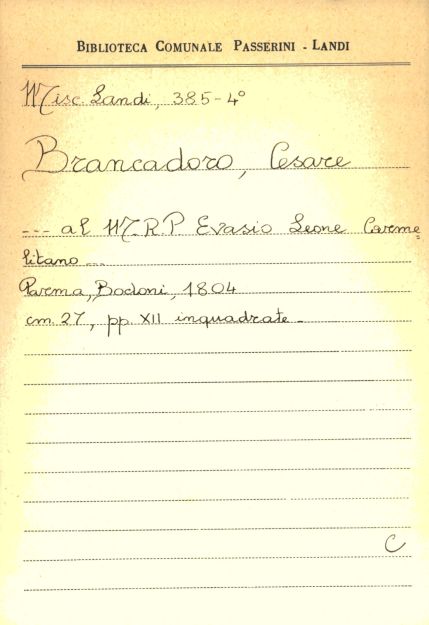 BIBLIOTECA COMUNALE PASSERINI - LANDI
Misc. Landi, 385-4°
Brancadoro, Cesare
--- al M.R.P Evasio Leone Carme=
litano ---
Parma, Bodoni, 1804
cm. 27, pp. XII inquadrate -
C